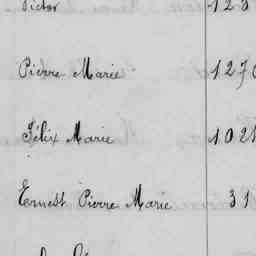 Victor 128
Pierre Marie 127
Félix Marie 102
Ernest Pierre Marie 31